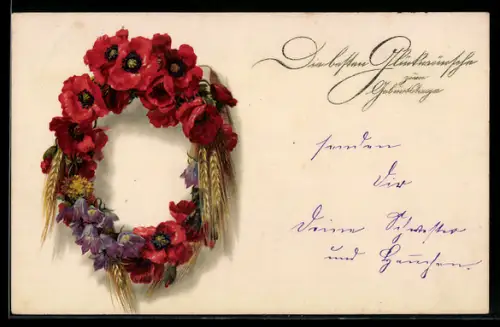 Die besten Glückwünsche
zum
Geburtstage
senden
Dir
Deine Schwester
und